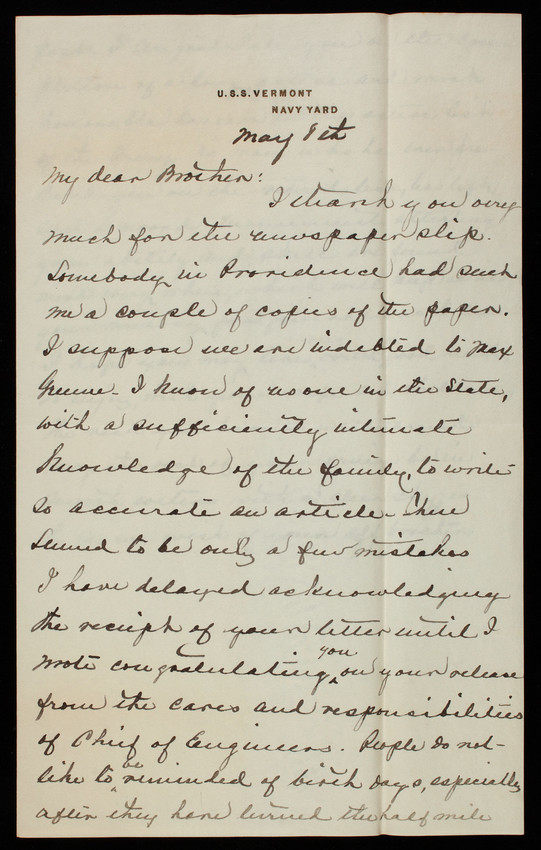 U.S.S. VERMONT
NAVY YARD
May 8th
My dear Brother:
I thank you very
much for the newspaper slip.
Somebody in Providence had sent
me a couple of copies of the paper.
I suppose we are indebted to Max
Greene - I know of no one in the State,
with a sufficiently intimate
knowledge of the family, to write
so accurate an article - There
seemed to be only a few mistakes
I have delayed acknowledging
the receipt of your letter until I
wrote congratulating you on your release
from the cares and responsibilities
of Chief of Engineers. People do not
like to be reminded of birth days, especially
after they have turned the half mile